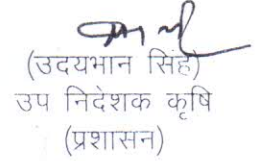 (उदयभान सिंह)
उप निदेशक कृषि
(प्रशासन)